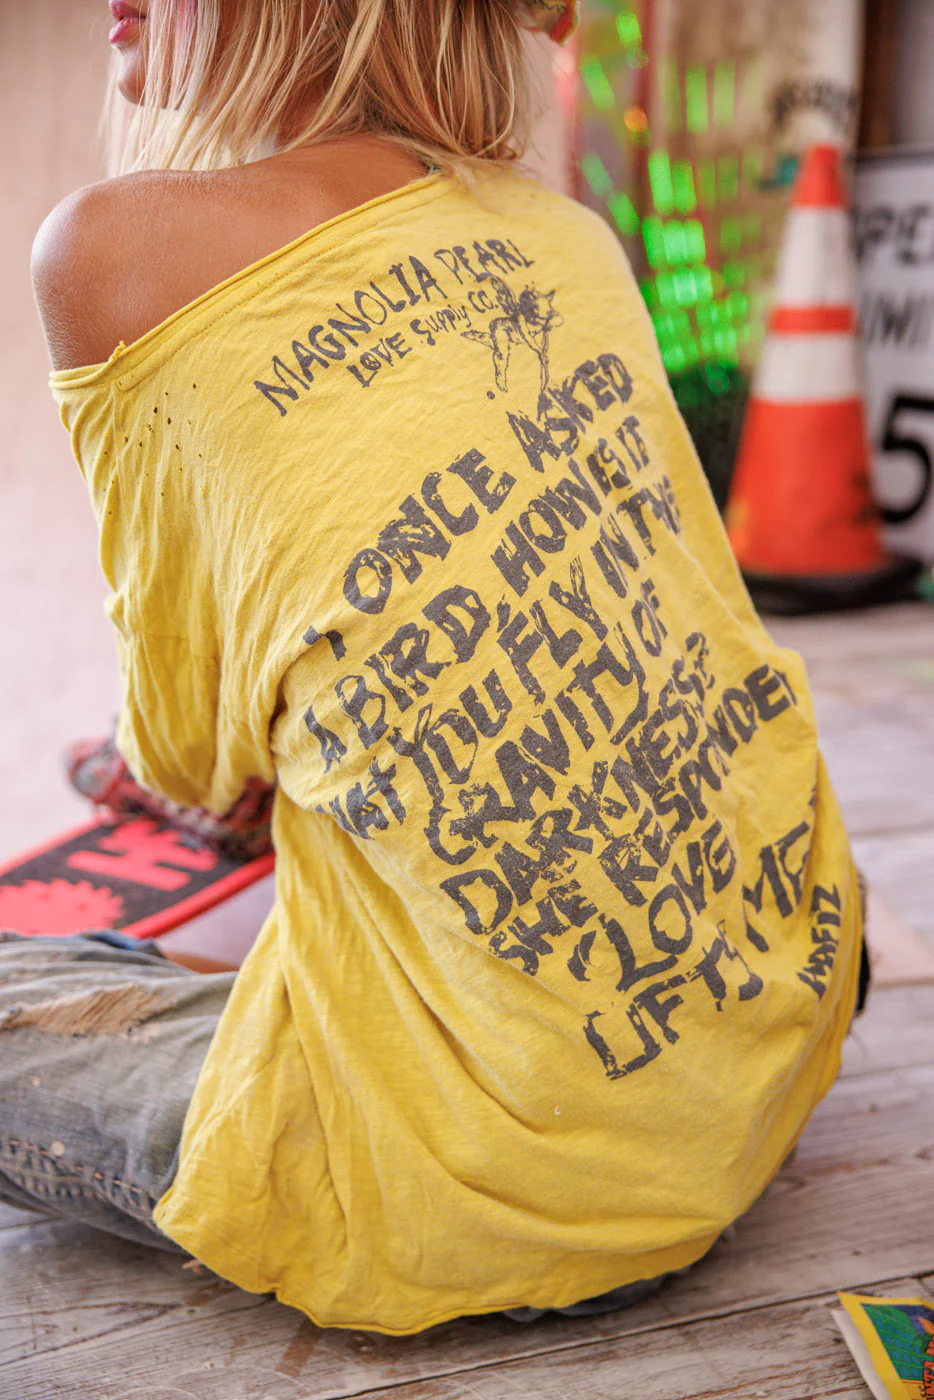 MAGNOLIA PEARL
LOVE Supply CO.
I ONCE ASKED
A BIRD, HOW IS IT
THAT YOU FLY IN THE
GRAVITY OF
DARKNESS?
SHE RESPONDED
"LOVE
LIFTS ME
HAFIZ
OPEN
LIMIT
5